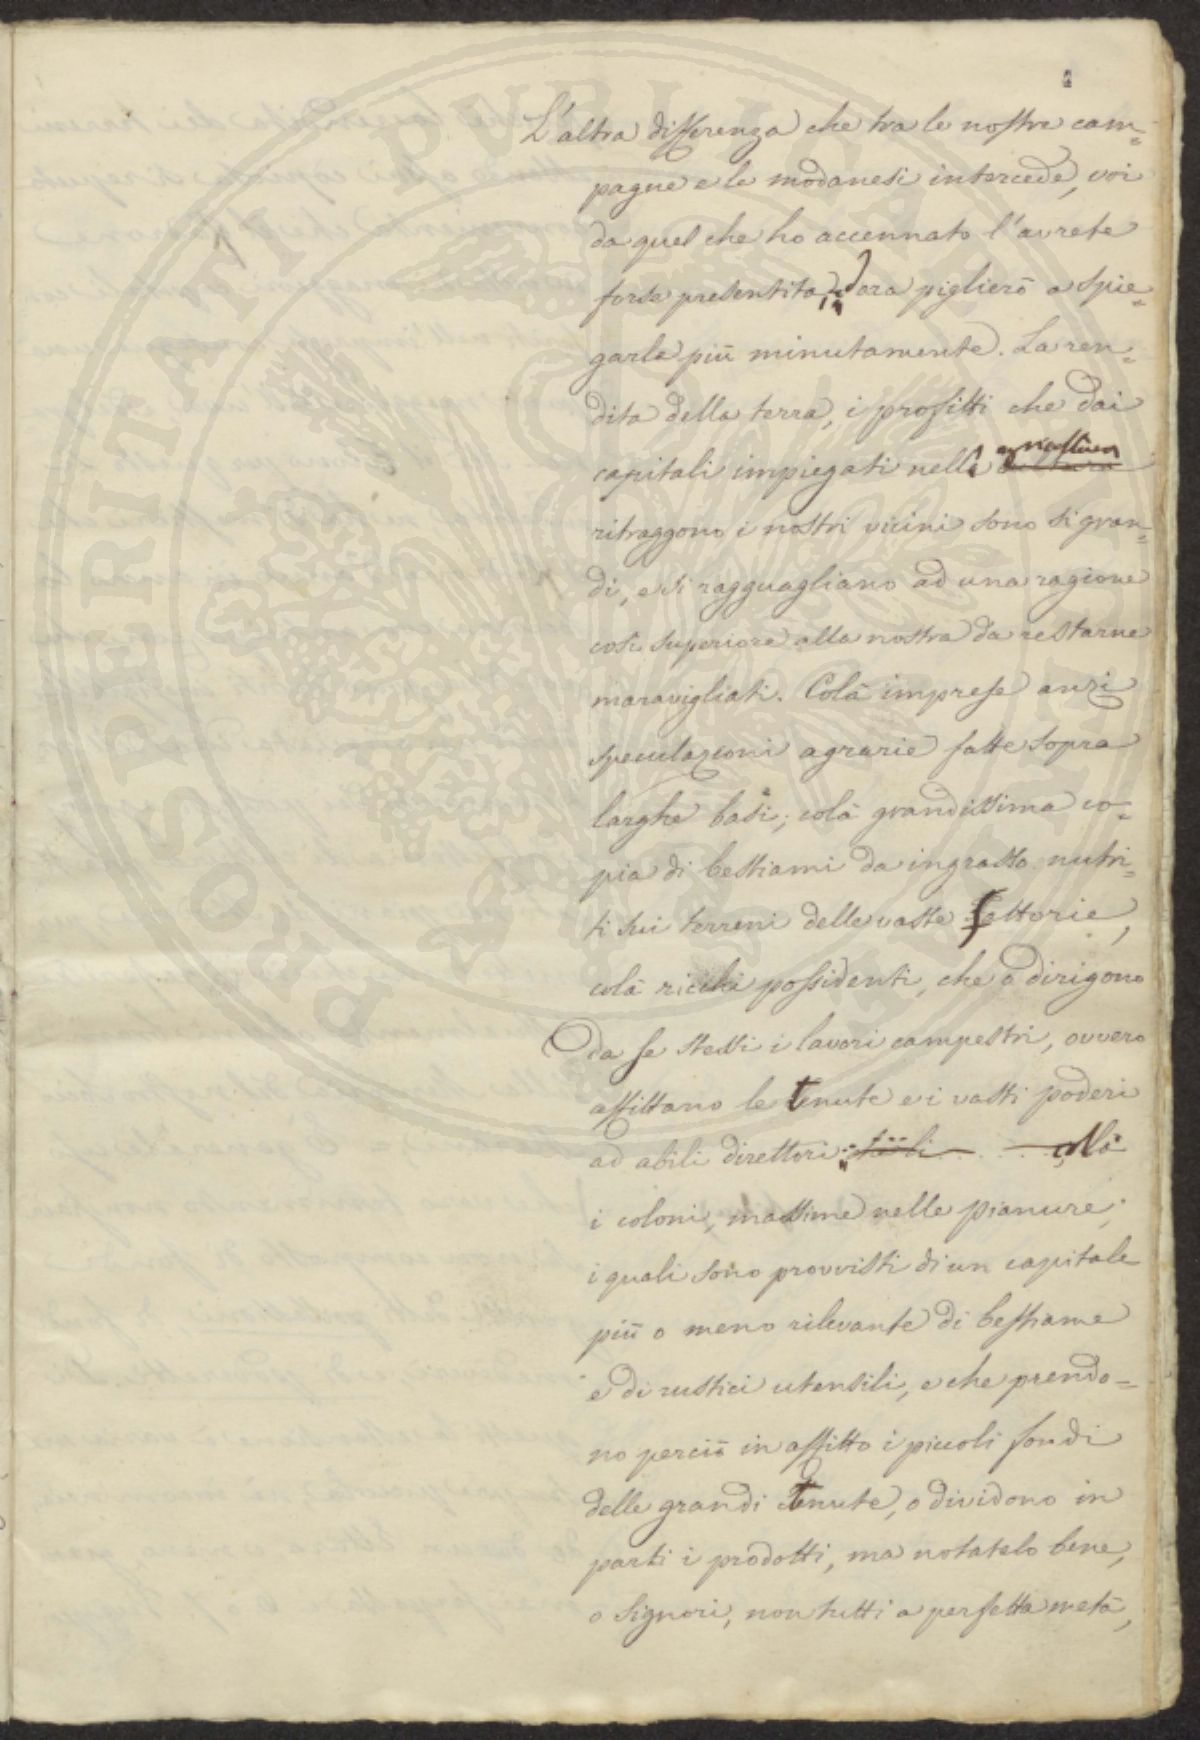 L'altra differenza che tra le nostre cam=
pagne e le modanesi intercede, voi
da quel che ho accennato l'avrete
forse presentita, ora piglierò a spie=
garle più minutamente. La ren=
dita della terra, i profitti che dai
capitali impiegati nell'agricoltura
ritraggono i nostri vicini sono sì gran=
di, e si ragguagliano ad una ragione
così superiore alla nostra da restarne
maravigliati. Colà imprese anzi
speculazioni agrarie fatte sopra
larghe basi; colà grandissima co=
pia di bestiami da ingrasso nutri=
ti sui terreni delle vaste fattorie,
colà ricchi possidenti, che o dirigono
da se stessi i lavori campestri, ovvero
affittano le tenute e i vasti poderi
ad abili direttori:
i coloni, massime nelle pianure,
i quali sono provvisti di un capitale
più o meno rilevante di bestiame
e di rustici utensili, e che prendo=
no perciò in affitto i piccoli fondi
delle grandi tenute, o dividono in
parti i prodotti, ma notatelo bene,
o Signori, non tutti a perfetta metà,
PROSPERITATI PVBLICAE